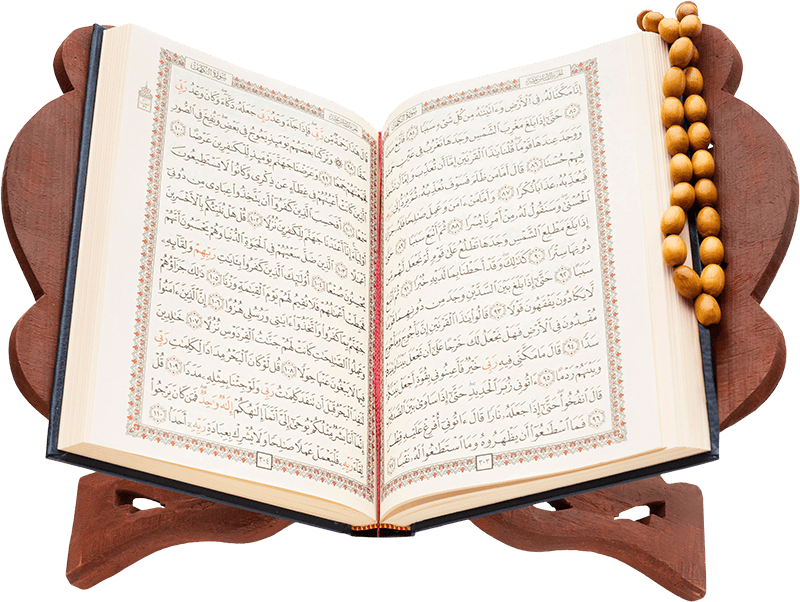 سورة الكهف
إِنَّا مَكَّنَّا لَهُۥ فِي ٱلۡأَرۡضِ وَءَاتَيۡنَٰهُ مِن كُلِّ شَيۡءٖ سَبَبٗا ٨٤ فَأَتۡبَعَ سَبَبًا
٨٥ حَتَّىٰٓ إِذَا بَلَغَ مَغۡرِبَ ٱلشَّمۡسِ وَجَدَهَا تَغۡرُبُ فِي عَيۡنٍ حَمِئَةٖ
وَوَجَدَ عِندَهَا قَوۡمٗاۖ قُلۡنَا يَٰذَا ٱلۡقَرۡنَيۡنِ إِمَّآ أَن تُعَذِّبَ وَإِمَّآ أَن تَتَّخِذَ
فِيهِمۡ حُسۡنٗا ٨٦ قَالَ أَمَّا مَن ظَلَمَ فَسَوۡفَ نُعَذِّبُهُۥ ثُمَّ يُرَدُّ إِلَىٰ رَبِّهِۦ
فَيُعَذِّبُهُۥ عَذَابٗا نُّكۡرٗا ٨٧ وَأَمَّا مَنۡ ءَامَنَ وَعَمِلَ صَٰلِحٗا فَلَهُۥ جَزَآءً
ٱلۡحُسۡنَىٰۖ وَسَنَقُولُ لَهُۥ مِنۡ أَمۡرِنَا يُسۡرٗا ٨٨ ثُمَّ أَتۡبَعَ سَبَبًا ٨٩ حَتَّىٰٓ
إِذَا بَلَغَ مَطۡلِعَ ٱلشَّمۡسِ وَجَدَهَا تَطۡلُعُ عَلَىٰ قَوۡمٖ لَّمۡ نَجۡعَل لَّهُم مِّن
دُونِهَا سِتۡرٗا ٩٠ كَذَٰلِكَۖ وَقَدۡ أَحَطۡنَا بِمَا لَدَيۡهِ خُبۡرٗا ٩١ ثُمَّ أَتۡبَعَ
سَبَبًا ٩٢ حَتَّىٰٓ إِذَا بَلَغَ بَيۡنَ ٱلسَّدَّيۡنِ وَجَدَ مِن دُونِهِمَا قَوۡمٗا
لَّا يَكَادُونَ يَفۡقَهُونَ قَوۡلٗا ٩٣ قَالُواْ يَٰذَا ٱلۡقَرۡنَيۡنِ إِنَّ يَأۡجُوجَ وَمَأۡجُوجَ
مُفۡسِدُونَ فِي ٱلۡأَرۡضِ فَهَلۡ نَجۡعَلُ لَكَ خَرۡجًا عَلَىٰٓ أَن تَجۡعَلَ بَيۡنَنَا وَبَيۡنَهُمۡ
سَدّٗا ٩٤ قَالَ مَا مَكَّنِّي فِيهِ رَبِّي خَيۡرٞ فَأَعِينُونِي بِقُوَّةٍ أَجۡعَلۡ بَيۡنَكُمۡ
وَبَيۡنَهُمۡ رَدۡمًا ٩٥ ءَاتُونِي زُبَرَ ٱلۡحَدِيدِۖ حَتَّىٰٓ إِذَا سَاوَىٰ بَيۡنَ ٱلصَّدَفَيۡنِ
قَالَ ٱنفُخُواْۖ حَتَّىٰٓ إِذَا جَعَلَهُۥ نَارٗا قَالَ ءَاتُونِيٓ أُفۡرِغۡ عَلَيۡهِ قِطۡرٗا
٩٦ فَمَا ٱسۡطَٰعُوٓاْ أَن يَظۡهَرُوهُ وَمَا ٱسۡتَطَٰعُواْ لَهُۥ نَقۡبٗا ٩٧
٣٠٣
سورة الكهف
قَالَ هَٰذَا رَحۡمَةٞ مِّن رَّبِّيۖ فَإِذَا جَآءَ وَعۡدُ رَبِّي جَعَلَهُۥ دَكَّآءَۖ وَكَانَ وَعۡدُ رَبِّي
حَقّٗا ٩٨ وَتَرَكۡنَا بَعۡضَهُمۡ يَوۡمَئِذٖ يَمُوجُ فِي بَعۡضٖۖ وَنُفِخَ فِي ٱلصُّورِ
فَجَمَعۡنَٰهُمۡ جَمۡعٗا ٩٩ وَعَرَضۡنَا جَهَنَّمَ يَوۡمَئِذٖ لِّلۡكَٰفِرِينَ عَرۡضًا ١٠٠
ٱلَّذِينَ كَانَتۡ أَعۡيُنُهُمۡ فِي غِطَآءٍ عَن ذِكۡرِي وَكَانُواْ لَا يَسۡتَطِيعُونَ
سَمۡعًا ١٠١ أَفَحَسِبَ ٱلَّذِينَ كَفَرُوٓاْ أَن يَتَّخِذُواْ عِبَادِي مِن دُونِيٓ
أَوۡلِيَآءَۚ إِنَّآ أَعۡتَدۡنَا جَهَنَّمَ لِلۡكَٰفِرِينَ نُزُلٗا ١٠٢ قُلۡ هَلۡ نُنَبِّئُكُم بِٱلۡأَخۡسَرِينَ
أَعۡمَٰلًا ١٠٣ ٱلَّذِينَ ضَلَّ سَعۡيُهُمۡ فِي ٱلۡحَيَوٰةِ ٱلدُّنۡيَا وَهُمۡ يَحۡسَبُونَ أَنَّهُمۡ
يُحۡسِنُونَ صُنۡعًا ١٠٤ أُوْلَٰٓئِكَ ٱلَّذِينَ كَفَرُواْ بِـَٔايَٰتِ رَبِّهِمۡ وَلِقَآئِهِۦ
فَحَبِطَتۡ أَعۡمَٰلُهُمۡ فَلَا نُقِيمُ لَهُمۡ يَوۡمَ ٱلۡقِيَٰمَةِ وَزۡنٗا ١٠٥ ذَٰلِكَ جَزَآؤُهُمۡ
جَهَنَّمُ بِمَا كَفَرُواْ وَٱتَّخَذُوٓاْ ءَايَٰتِي وَرُسُلِي هُزُوًا ١٠٦ إِنَّ ٱلَّذِينَ ءَامَنُواْ
وَعَمِلُواْ ٱلصَّٰلِحَٰتِ كَانَتۡ لَهُمۡ جَنَّٰتُ ٱلۡفِرۡدَوۡسِ نُزُلًا ١٠٧ خَٰلِدِينَ
فِيهَا لَا يَبۡغُونَ عَنۡهَا حِوَلٗا ١٠٨ قُل لَّوۡ كَانَ ٱلۡبَحۡرُ مِدَادٗا لِّكَلِمَٰتِ رَبِّي
لَنَفِدَ ٱلۡبَحۡرُ قَبۡلَ أَن تَنفَدَ كَلِمَٰتُ رَبِّي وَلَوۡ جِئۡنَا بِمِثۡلِهِۦ مَدَدٗا ١٠٩ قُلۡ
إِنَّمَآ أَنَا۠ بَشَرٞ مِّثۡلُكُمۡ يُوحَىٰٓ إِلَيَّ أَنَّمَآ إِلَٰهُكُمۡ إِلَٰهٞ وَٰحِدٞۖ فَمَن كَانَ يَرۡجُواْ
لِقَآءَ رَبِّهِۦ فَلۡيَعۡمَلۡ عَمَلٗا صَٰلِحٗا وَلَا يُشۡرِكۡ بِعِبَادَةِ رَبِّهِۦٓ أَحَدَۢا ١١٠
٣٠٤